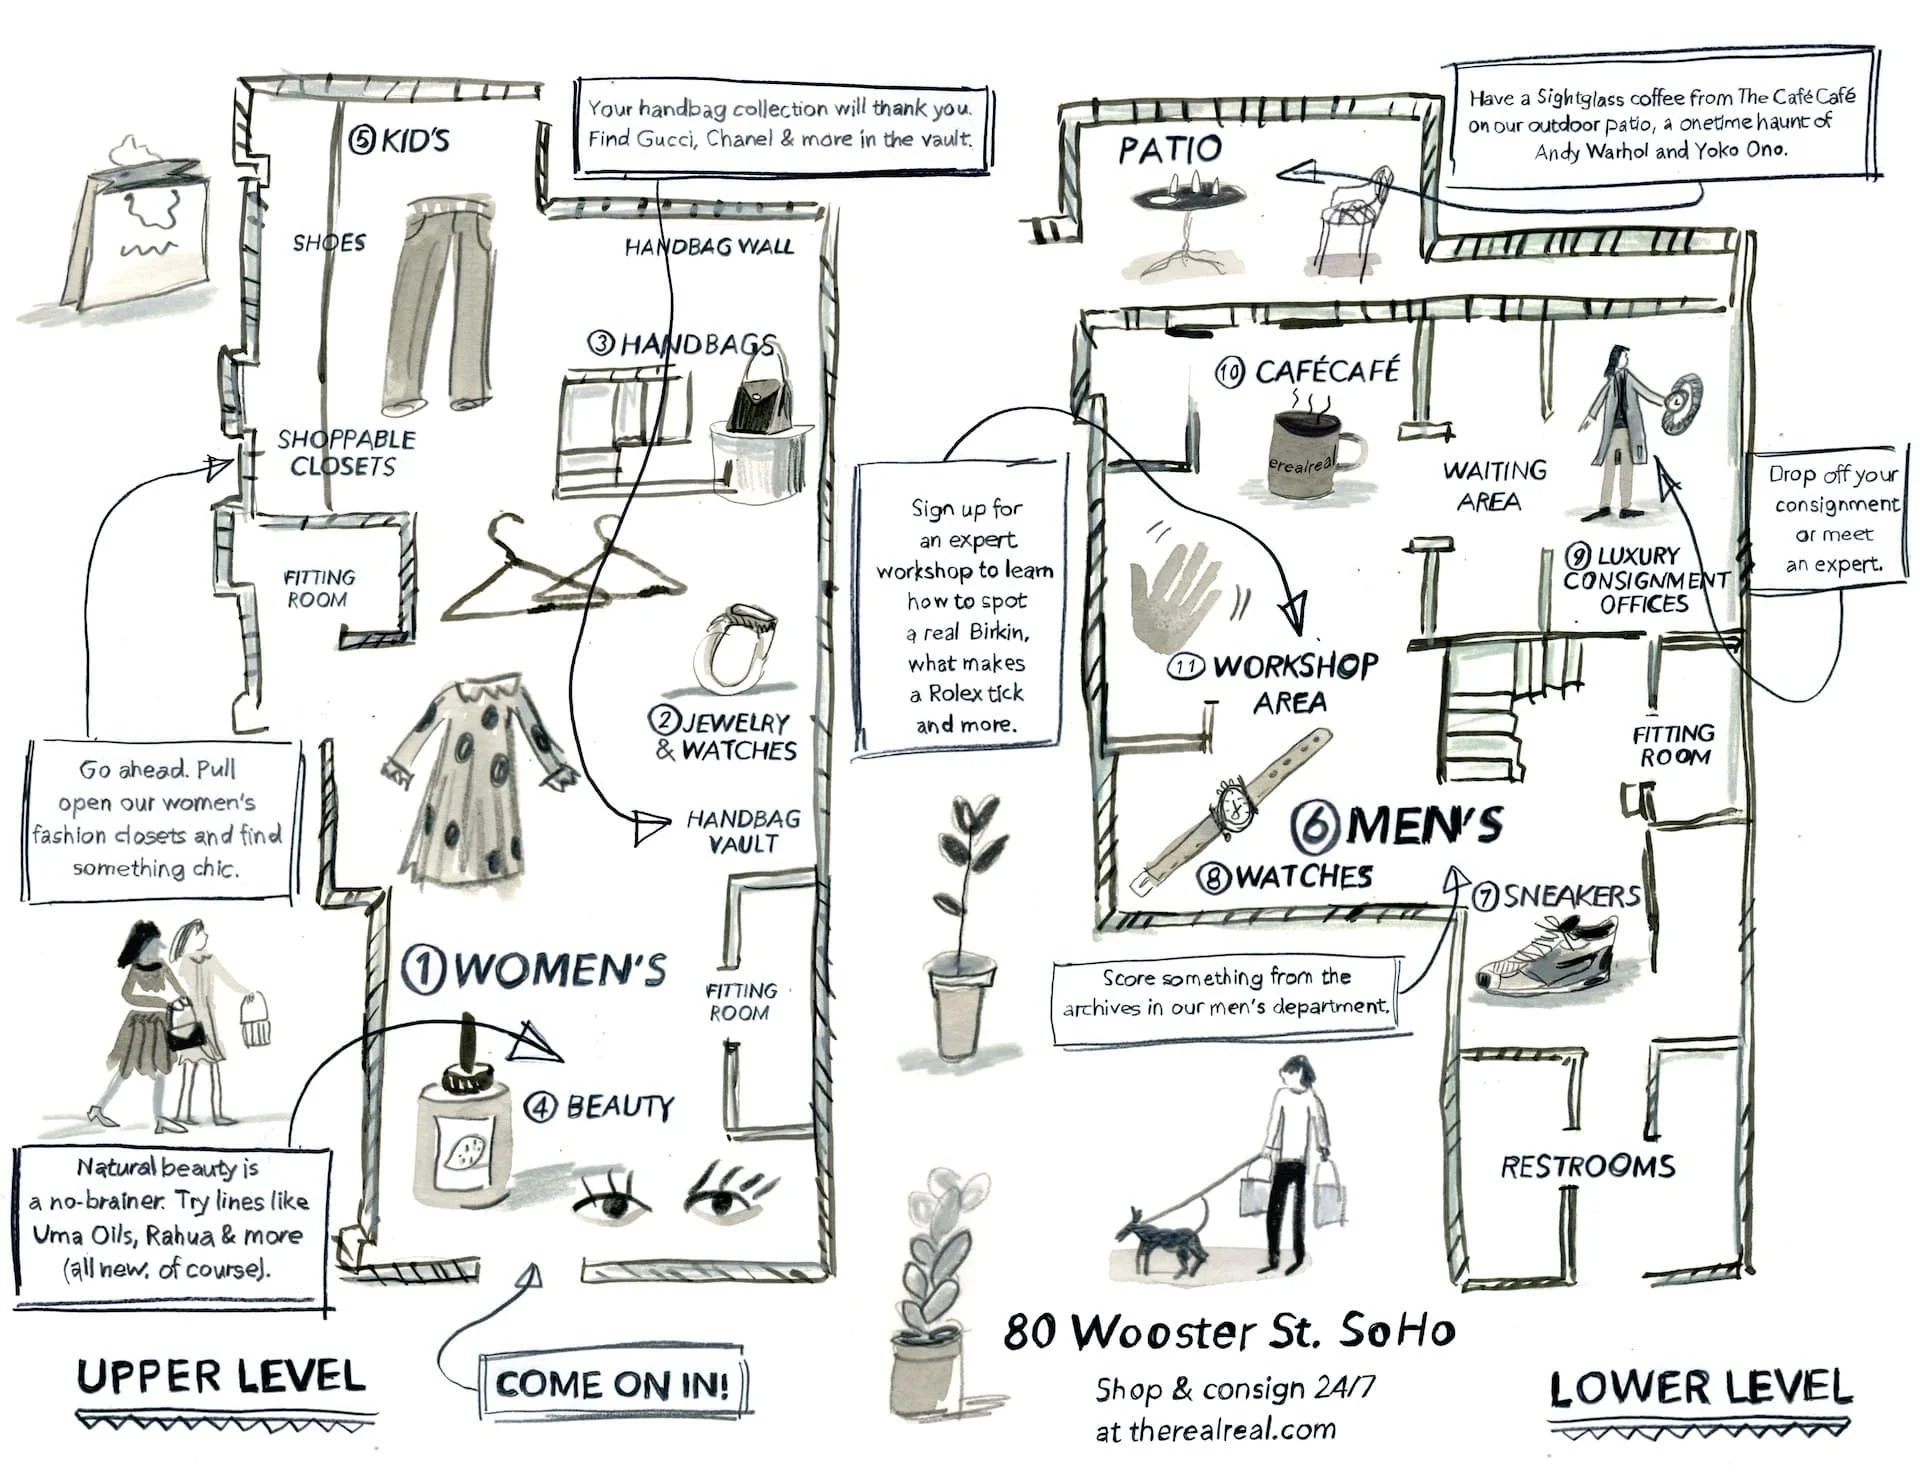 ⑤ KID'S
SHOES
SHOPPABLE
CLOSETS
FITTING
ROOM
Your handbag collection will thank you.
Find Gucci, Chanel & more in the vault.
HANDBAG WALL
③ HANDBAGS
② JEWELRY
& WATCHES
HANDBAG
VAULT
Go ahead. Pull
open our women's
fashion closets and find
something chic.
① WOMEN'S
FITTING
ROOM
④ BEAUTY
Natural beauty is
a no-brainer. Try lines like
Uma Oils, Rahua & more
(all new, of course).
COME ON IN!
UPPER LEVEL
Have a Sightglass coffee from The CaféCafé
on our outdoor patio, a onetime haunt of
Andy Warhol and Yoko Ono.
PATIO
⑩ CAFÉCAFÉ
erealreal
WAITING
AREA
Drop off your
consignment
or meet
an expert.
⑨ LUXURY
CONSIGNMENT
OFFICES
Sign up for
an expert
workshop to learn
how to spot
a real Birkin,
what makes
a Rolex tick
and more.
⑪ WORKSHOP
AREA
FITTING
ROOM
⑥ MEN'S
⑧ WATCHES
⑦ SNEAKERS
Score something from the
archives in our men's department.
RESTROOMS
80 Wooster St. SoHo
Shop & consign 24/7
at therealreal.com
LOWER LEVEL